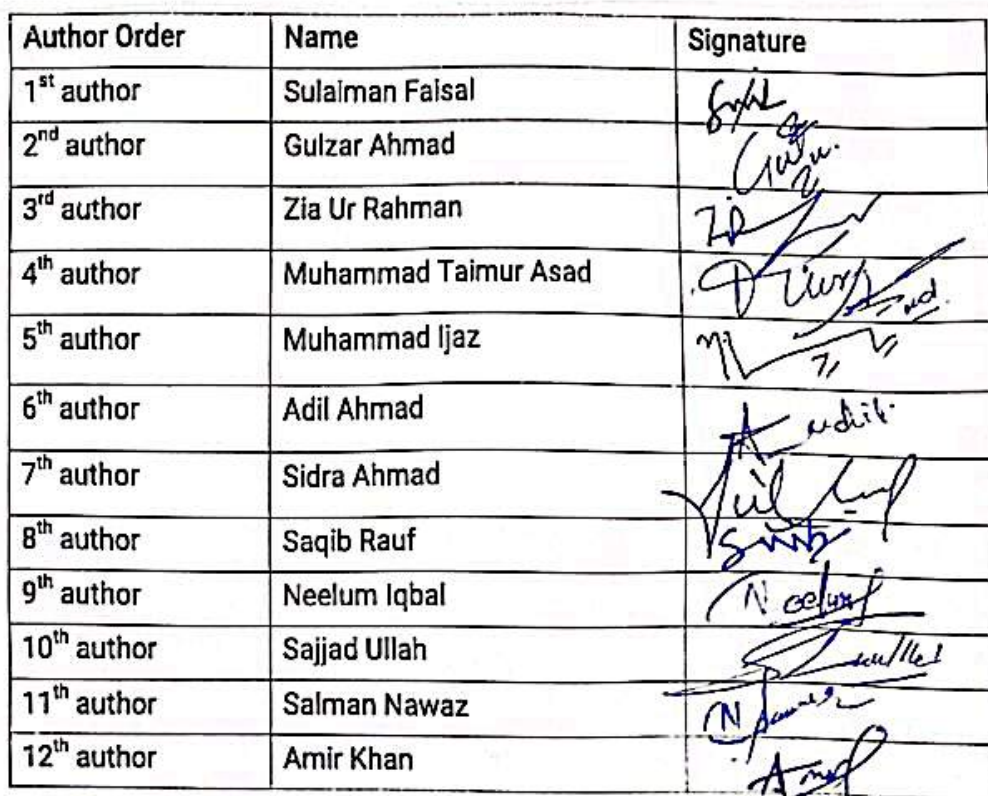 Author Order Name Signature
1st author Sulaiman Faisal
2nd author Gulzar Ahmad
3rd author Zia Ur Rahman
4th author Muhammad Taimur Asad
5th author Muhammad Ijaz
6th author Adil Ahmad
7th author Sidra Ahmad
8th author Saqib Rauf
9th author Neelum Iqbal Neelum
10th author Sajjad Ullah
11th author Salman Nawaz
12th author Amir Khan